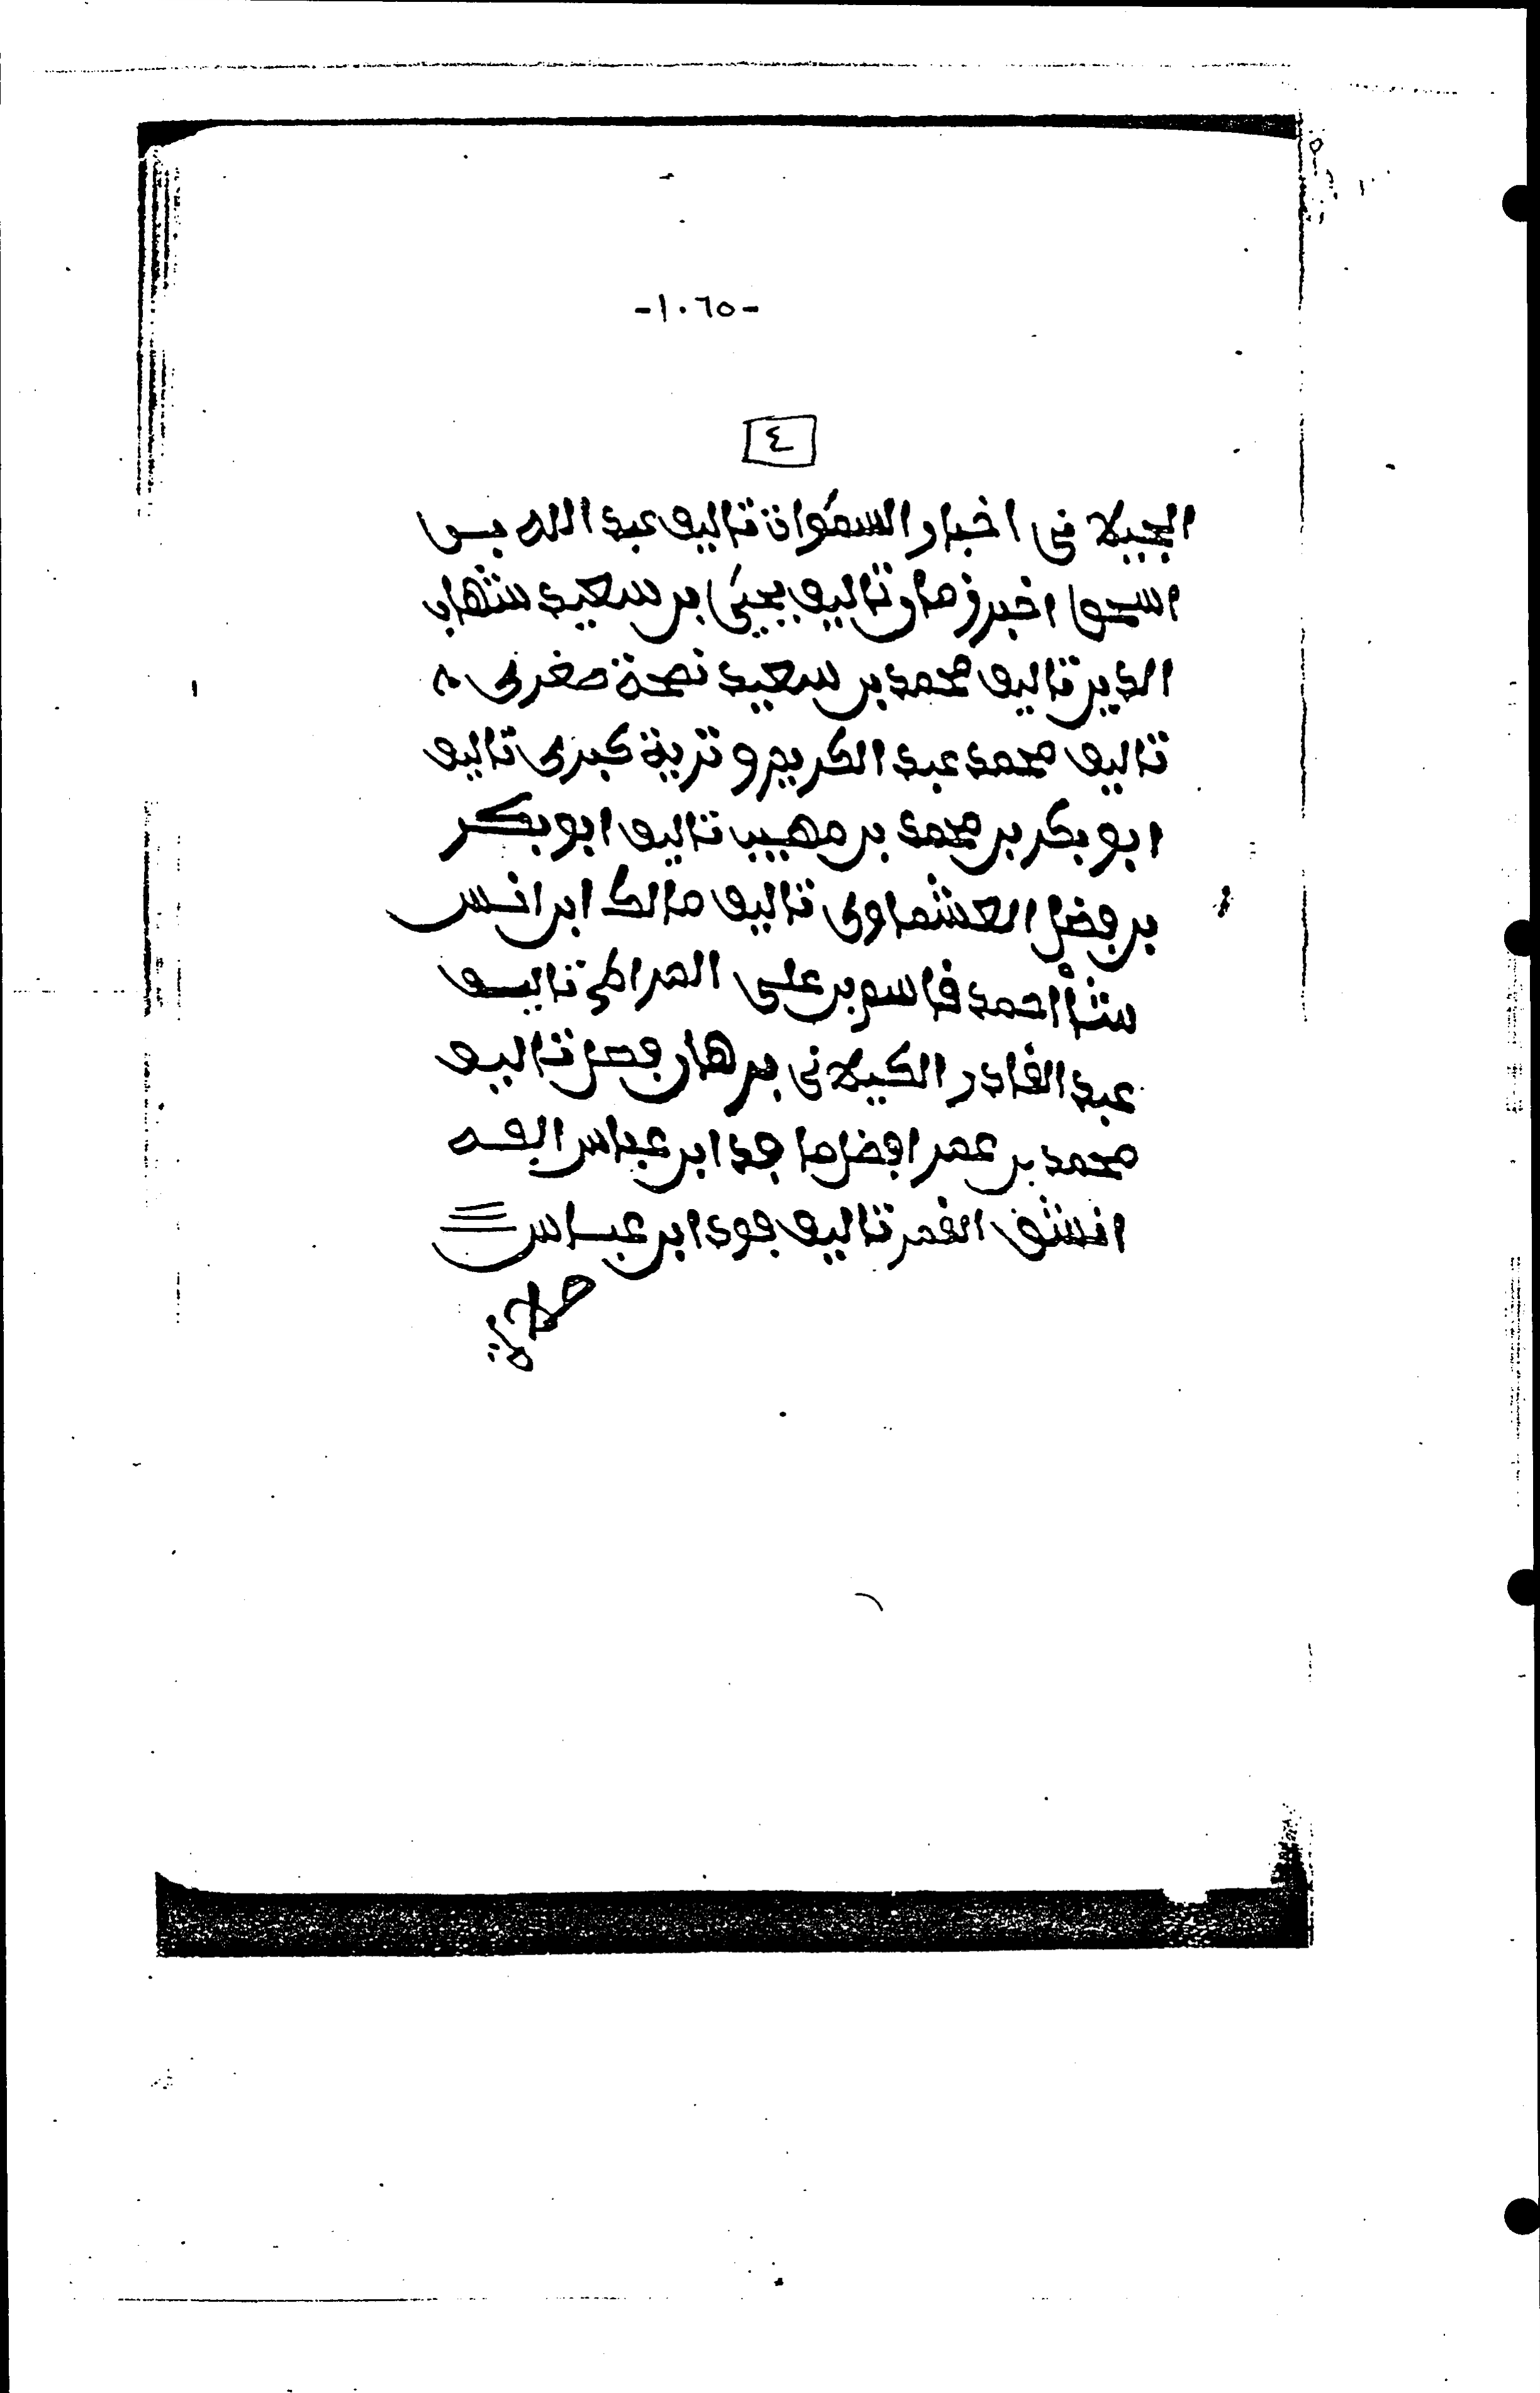 -١٠٦٥-
٤
الجيلا في اخبار السموات تاليف عبد الله بن
اسحو اخبر زمان تاليف يحيى بن سعيد شهاب
الدين تاليف محمد بن سعيد نصحة صغرى
تاليف محمد عبد الكريم و تزية كبرى تاليف
ابو بكر بن محمد بن مهيب تاليف ابو بكر
بن فضل العشماوى تاليف مالك ابن انس
احمد قاسم بن على تاليف
عبد القادر الكيلانى برهان تاليف
محمد بن عمر افضل ما ابن عباس الفه
انشق القمر تاليف جود ابن عباس